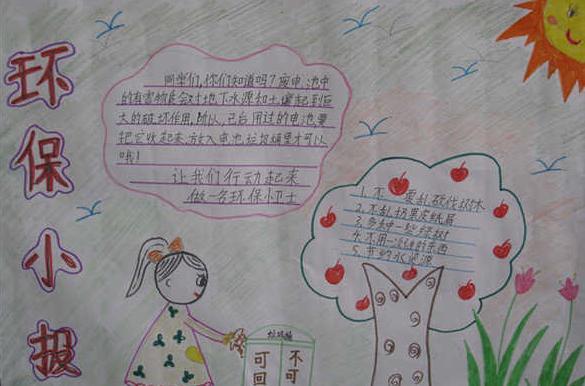 环保小报
同学们,你们知道吗?废电池中
的有害物质会对地下水源和土壤起到巨
大的破坏作用,所以,己后用过的电池要
把它收起来,放入电池垃圾桶里才可以
哦!
让我们行动起来
做一名环保小卫士
1.不要乱砍伐树木
2.不乱扔果皮纸屑
3.多种一些绿树
4.不用一次性的东西
5.节约水资源
垃圾桶
可回
不可